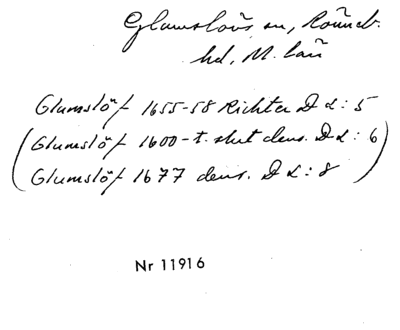 Glumslövs sn, Rönneb.
hd, M. län
Glumslöf 1655-58 Richter D L: 5
(Glumslöf 1600-t. slut dens. D L: 6
Glumslöf 1677 dens. D L: 8)
Nr 11916